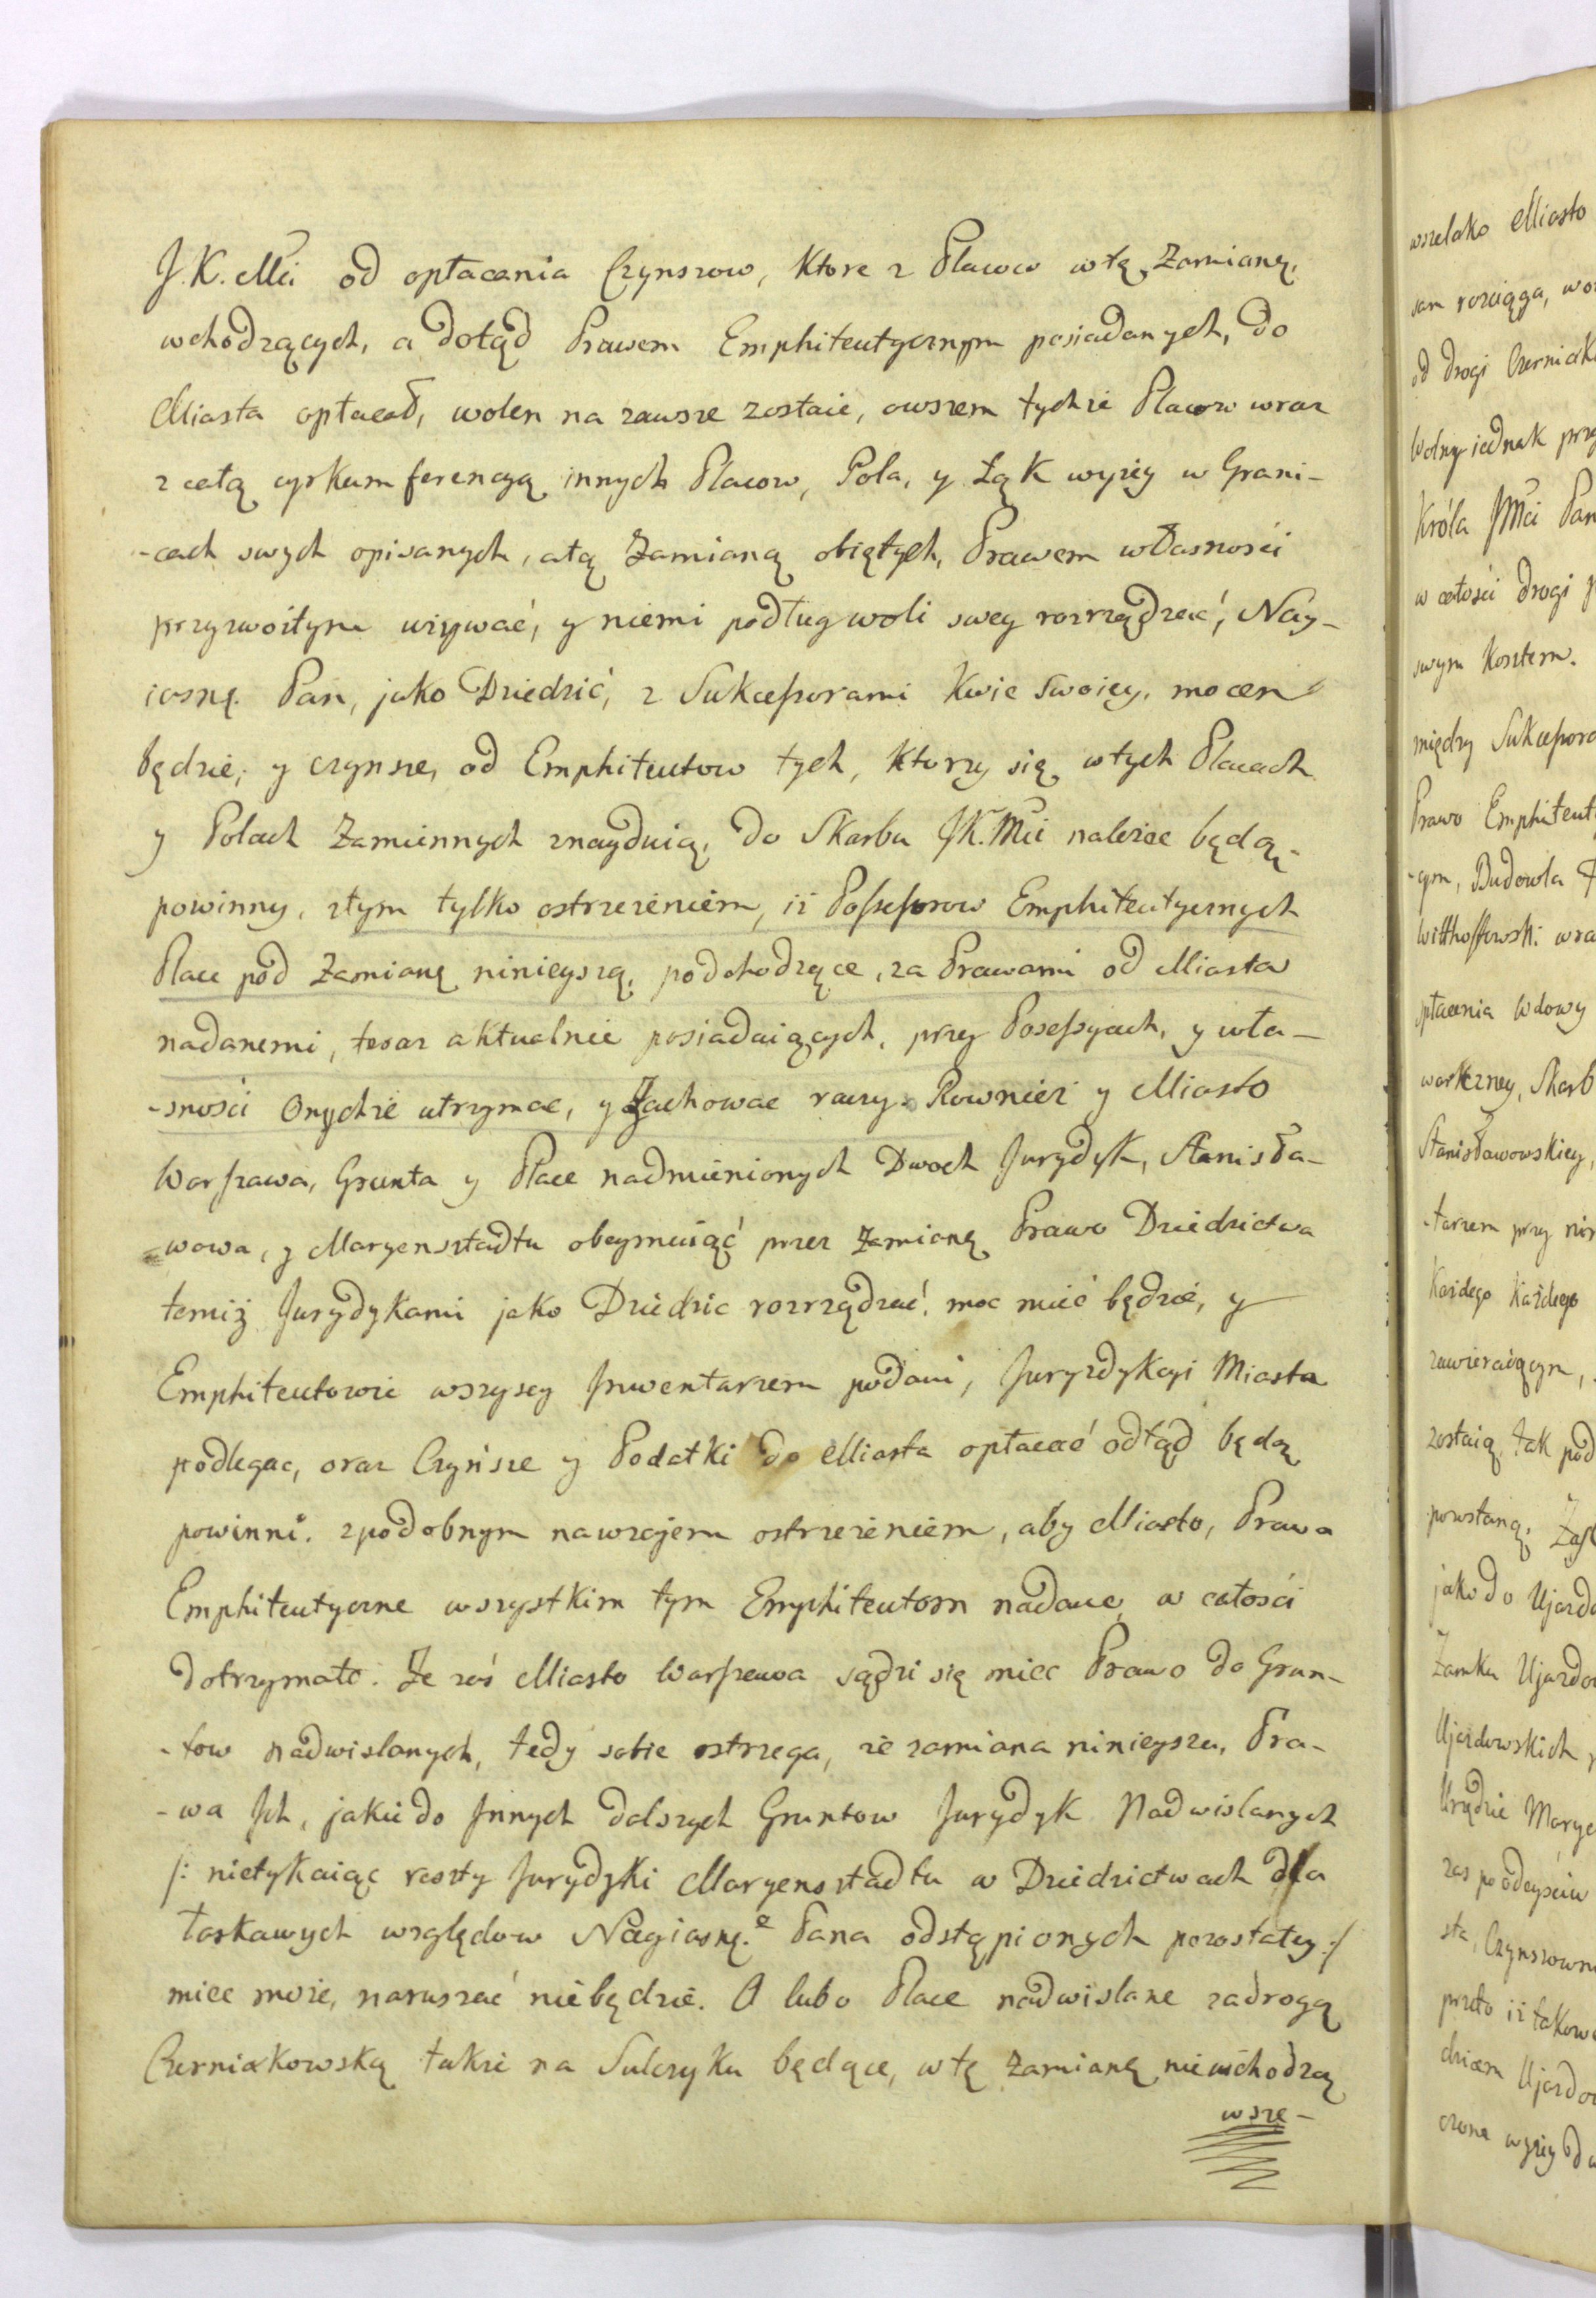 J.K.Mci od opłacania Czynszow, Ktore z Placow wtę Zamianę,
wchodzących, a dotąd Prawem Emphiteutycznym posiadanych, do
Miasta opłacał, wolen na zawsze zostaie, owszem tychże Placow wraz
z całą cyrkumferencyą innych Placow, Pola, y Łąk wyżey w Grani-
-cach swych opisanych, atą Zamianą obiętych, Prawem własności
przyzwoitym używać, y niemi podług woli swey rozrządzać, Nay-
iasnę. Pan, jako Dziedzić, z Sukceſsorami Kwie Swoiey, mocen
będzie, y czynsze, od Emphiteutow tych, Ktorzy się wtych Placach
y Polach Zamiennych znayduią, do Skarbu JK.Mci należec będą,-
powinny, ztym tylko ostrzeżeniem, iż Poſseſsorow Emphiteutycznych
Place pod Zamianę ninieyszą, podchodzące, za Prawami od Miasta
nadanemi, teraz aktualnie posiadaiących, przy Poseſsyach, y wła-
-sności Onychże utrzymac, y Zachowac raczy. Rownież y Miasto
Warſzawa, Grunta y Place nadmienionych Dwoch Jurydyk, Stanisła-
-wowa, y Maryensztadtu obeymuiąć przez Zamianę Prawo Dziedzictwa
temiż Jurydykami jako Dziedzic rozrządzać moc mieć będzie, y
Emphiteutowie wszyscy Jnwentarzem podani, Juryzdykcyi Miasta
podlegac, oraz Czyńsze y Podatki do Miasta opłacać odtąd będą
powinni. zpodobnym nawzajem ostrzeżeniem, aby Miasto, Prawa
Emphiteutyczne wszystkim tym Emphiteutom nadane, w całości
dotrzymało. Że zaś Miasto Warſzawa sądzi się miec Prawo do Grun-
-tow nadwislanych, tedy sobie ostrzega, że zamiana ninieysza, Pra-
-wa Jch, jakie do Jnnych dalszych Gruntow Jurydyk Nadwislanych
/: nietykaiąc reszty Jurydyki Maryensztadtu w Dziedzictwach dla
łaskawych względow Nayiasnę.e Pana odstąpionych pozostałey :/
miec może, naruszać niebędzie. A lubo Place nadwislane zadrogą
Czerniakowską także na Sulczyku będące, wtę Zamianę niewchodzą
wsze-
wszelako Miasto
sam rozciąga,
od drogi
Wolny iednak
Króla JMci Pan
w całości drogi
swym Kosztem.
między
Prawo
-cym, Budowla
opłacenia Wdowy
Stanisławowskiey,
-tarzem przy
Każdego Każdego
zawieraiącym,
zostaią, tak pod
powstaną,
jako do
Zamku
Ujazdowskich
zas po odeyściu
przeto iż
wyżey